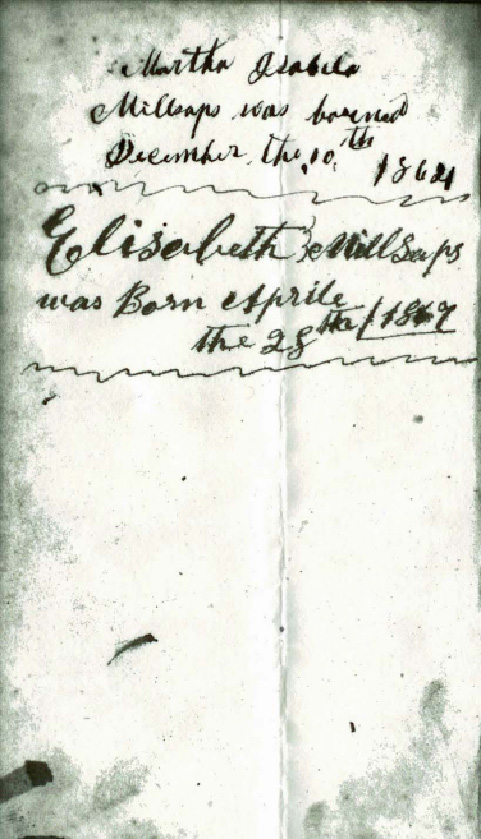 Martha Isabela
Millsaps was borned
December the 10th 1864
Elisabeth Millsaps
was Born Aprile
the 28th 1867